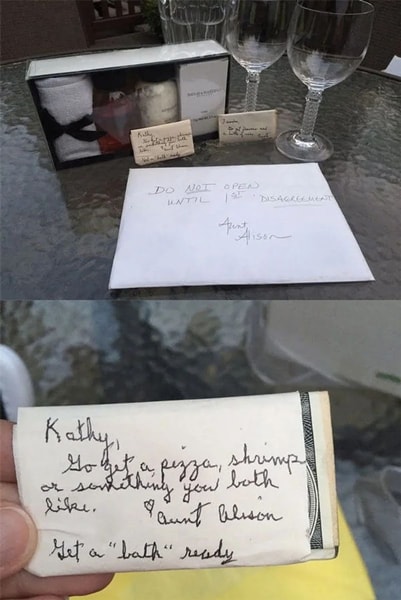 DO NOT OPEN
UNTIL 1ST DISAGREEMENT
Aunt
Alison
Kathy,
Go get a pizza, shrimp
or something you both
like.
Aunt Alison
Get a "bath" ready